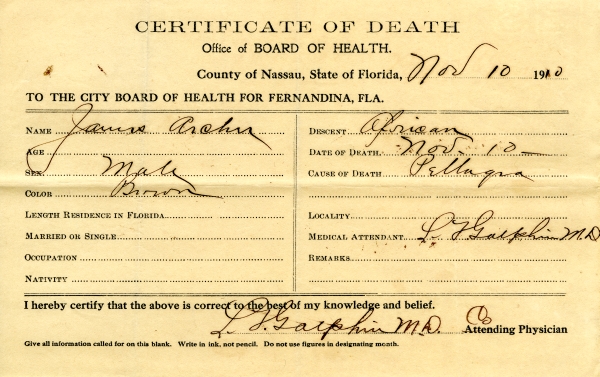 CERTIFICATE OF DEATH
Office of BOARD OF HEALTH.
County of Nassau, State of Florida, Nov 10 1910
TO THE CITY BOARD OF HEALTH FOR FERNANDINA, FLA.
NAME James Archer
AGE
SEX Male
COLOR Brown
LENGTH RESIDENCE IN FLORIDA
MARRIED OR SINGLE
OCCUPATION
NATIVITY
DESCENT African
DATE OF DEATH Nov. 10-
CAUSE OF DEATH Pellagra
LOCALITY
MEDICAL ATTENDANT L. F. Galphin M.D.
REMARKS
I hereby certify that the above is correct to the best of my knowledge and belief.
L. F. Galphin M.D. Co Attending Physician
Give all information called for on this blank. Write in ink, not pencil. Do not use figures in designating month.